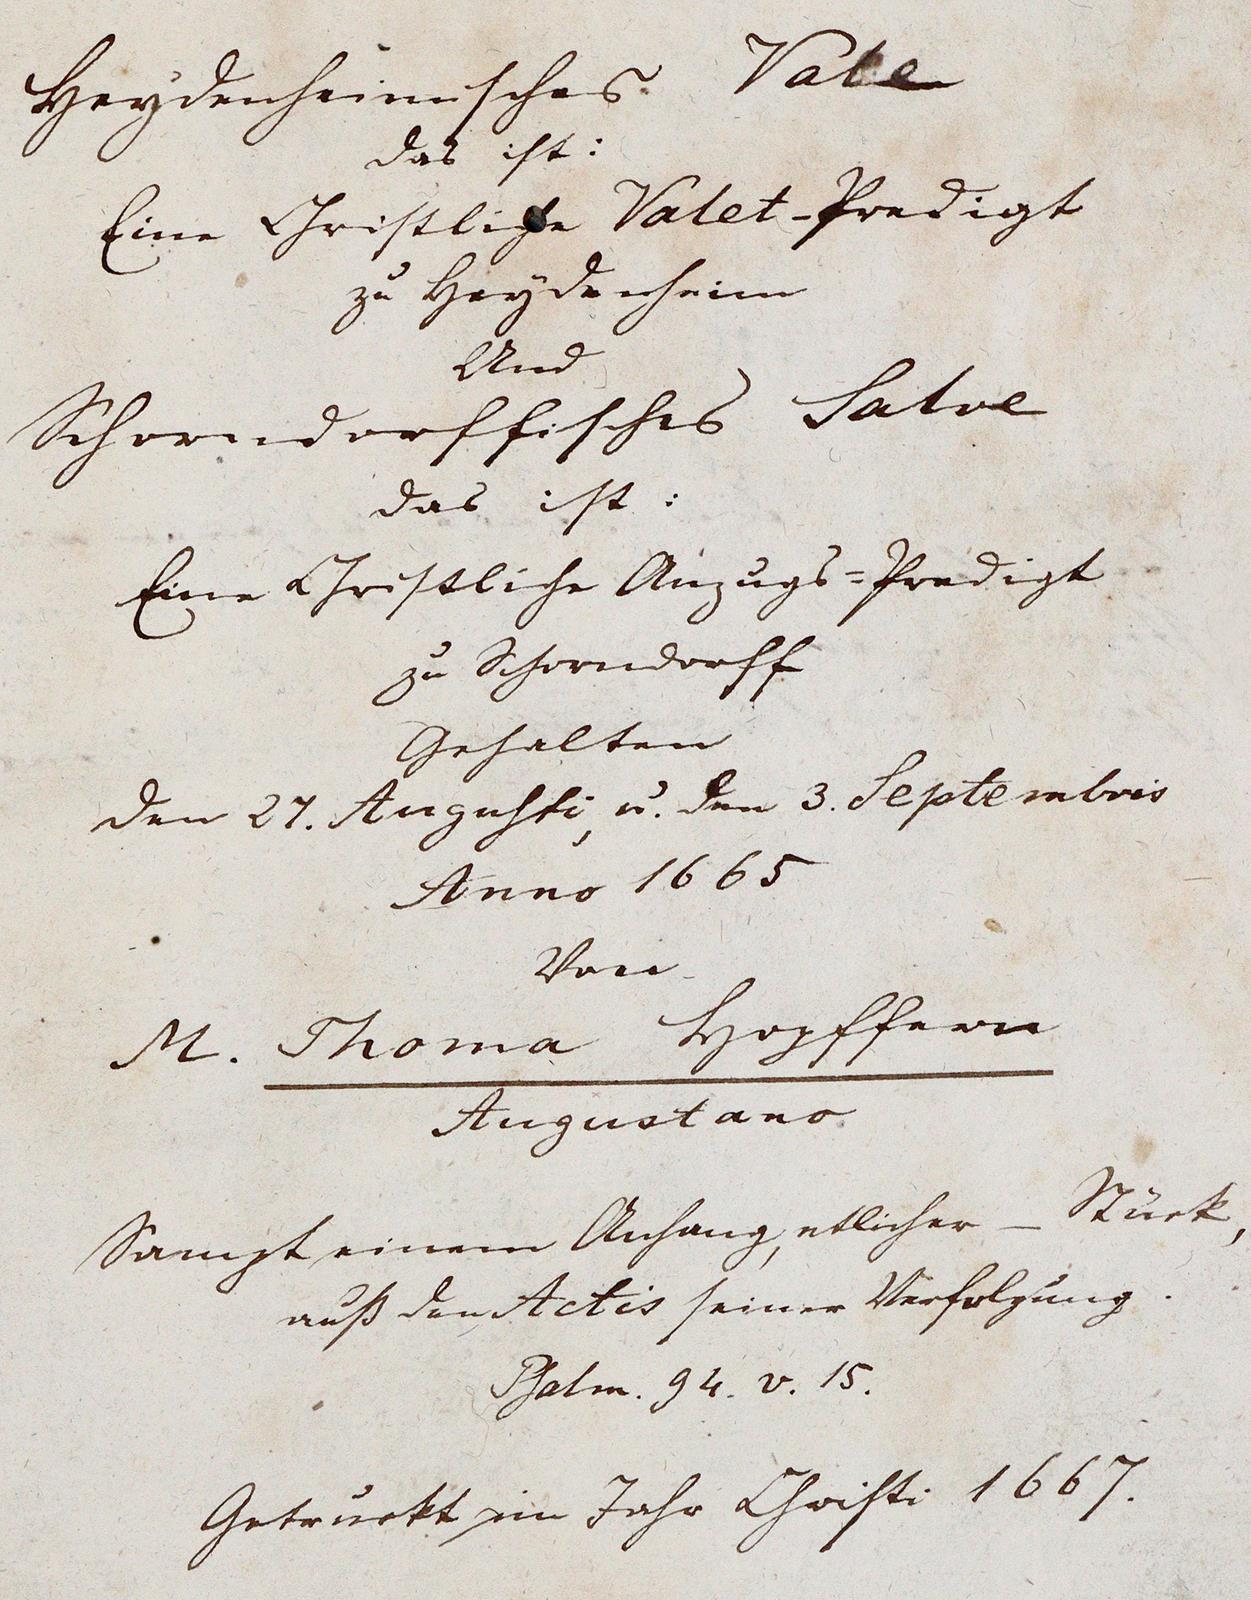 Heydenheimisches Vale
das ist:
Eine Christliche Valet-Predigt
zu Heydenheim
Und
Schorndorffisches Salve
das ist:
Eine Christliche Anzugs=Predigt
zu Schorndorff
Gehalten
den 27. Augusti, u. den 3. Septembris
Anno 1665
Von
M. Thoma Hopffern
Augustano
Sampt einem Anhang, etlicher – Stück,
auß den Actis seiner Verfolgung.
Psalm. 94. v. 15.
Getruckt im Jahr Christi 1667.